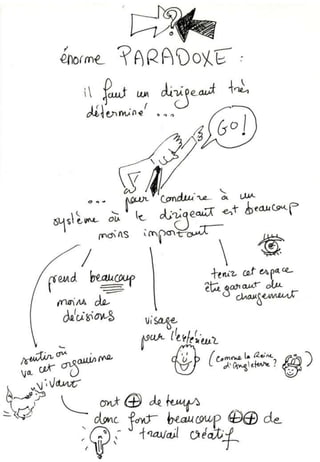 ?
énorme PARADOXE :
il faut un dirigeant très
déterminé ...
GO!
... pour conduire à un
système où le dirigeant est beaucoup
moins important
prend beaucoup
moins de
décisions
tenir cet espace
être garant du
changement
visage
pour l'extérieur
(comme la Reine
d'Angleterre ?
)
sentir où
va cet organisme
vivant
ont + de temps
donc font beaucoup ++ de
travail créatif